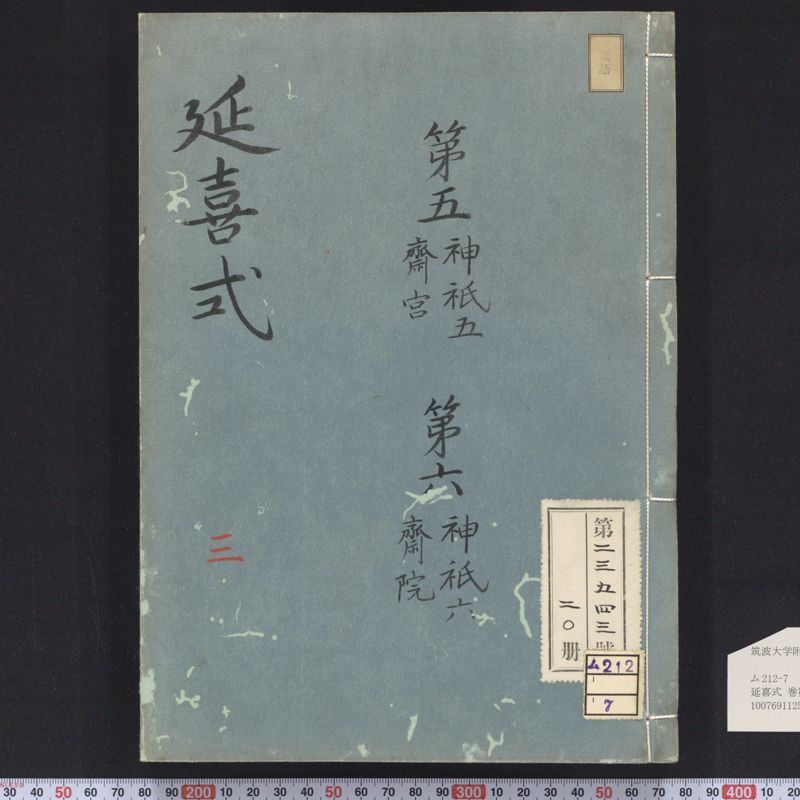 延喜式
三
第五 神祇五
齋宮
第六 神祇六
齋院
第二三五四三號
二〇册
ム212
7
筑波大学附
ム212-7
延喜式 巻
1007691125
30 40 50 60 70 80 90 200 10 20 30 40 50 60 70 80 90 300 10 20 30 40 50 60 70 80 90 400 10 20